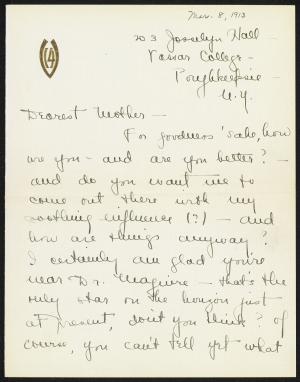 Mar. 8, 1913
203 Josselyn Hall -
Vassar College -
Poughkeepsie -
N.Y.
14
Dearest Mother -
For goodness' sake, how
are you - and are you better? -
and do you want me to
come out there with my
soothing influence (?) - and
how are things anyway?
I certainly am glad you're
near Dr. Maguire - that's the
only star on the horizon just
at present, don't you think? Of
course, you can't tell yet what